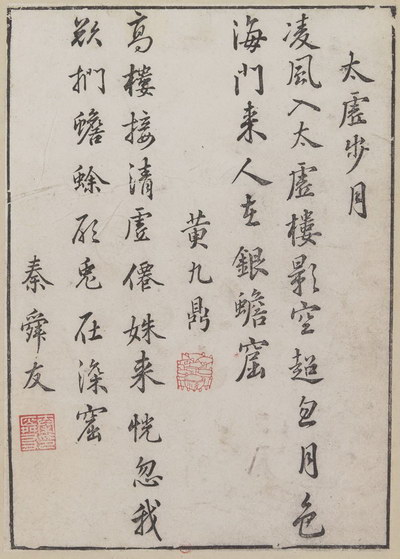 太虛步月
凌風入太虛樓影空超忽月色
海門来人在銀蟾窟
黃九鼎
高樓接清虛僊姝来恍忽我
欲捫蟾蜍顧兎在深窟
秦舜友